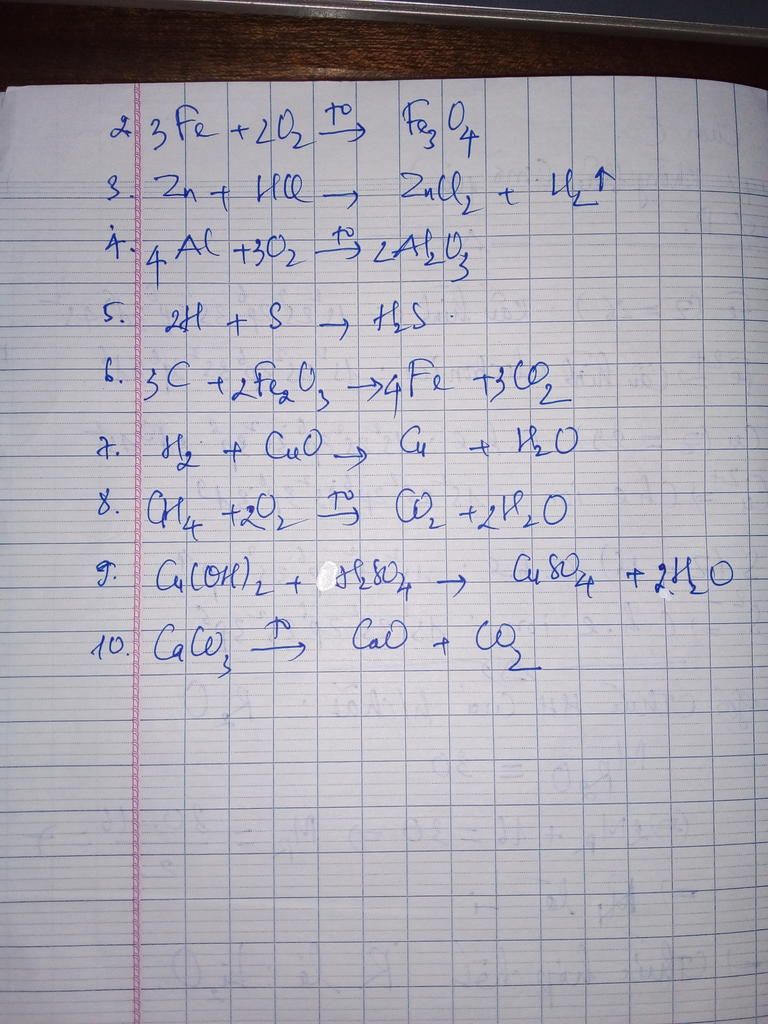 2. 3Fe + 2O₂ –t⁰→ Fe₃O₄
3. Zn + HCl → ZnCl₂ + H₂↑
4. 4Al + 3O₂ –t⁰→ 2Al₂O₃
5. 2H + S → H₂S.
6. 3C + 2Fe₂O₃ → 4Fe + 3CO₂
7. H₂ + CuO → Cu + H₂O
8. CH₄ + 2O₂ –t⁰→ CO₂ + 2H₂O
9. Cu(OH)₂ + H₂SO₄ → CuSO₄ + 2H₂O
10. CaCO₃ –t⁰→ CaO + CO₂